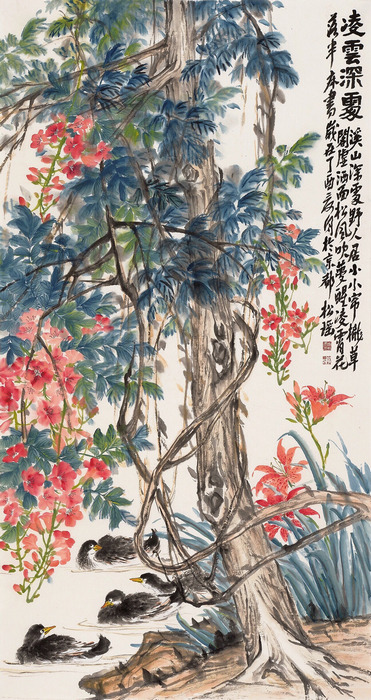 凌雲深處
溪山深處野人居小小帘櫳草
閣虛洒面松風吹夢醒凌霄花
落半床書歲在丁酉夏月於京都 松瑤